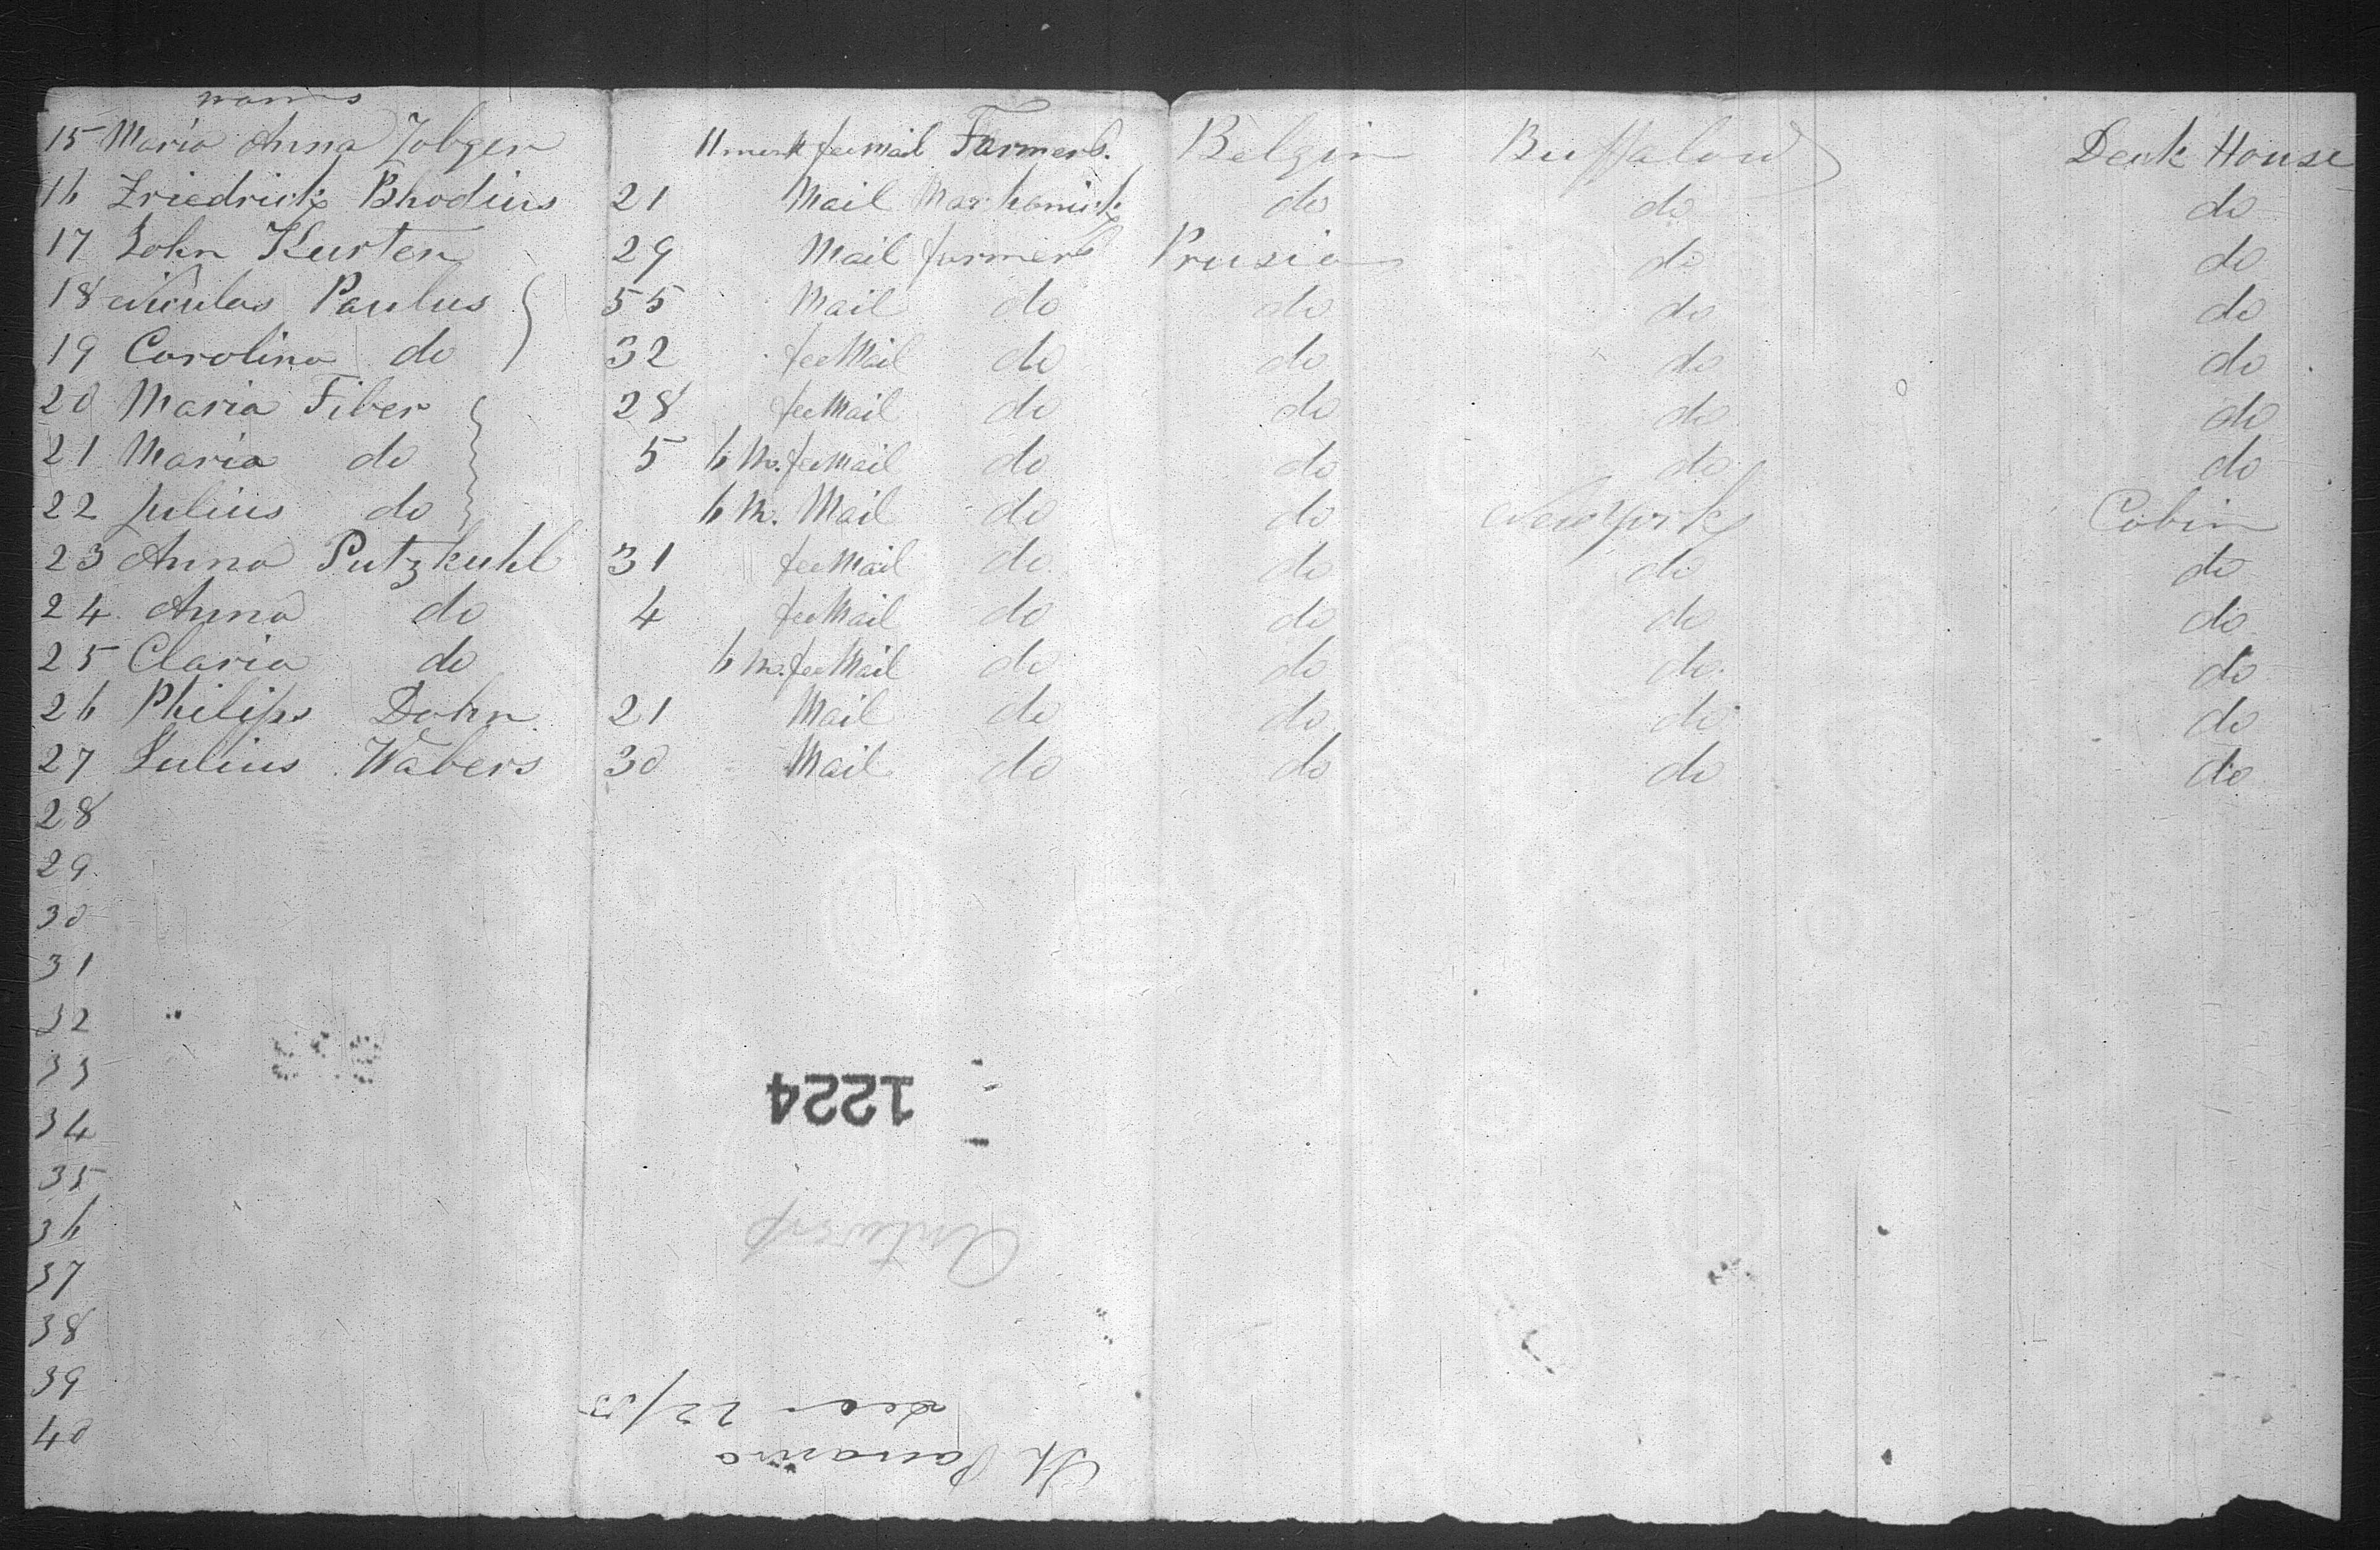 names
15 Maria Anna Zobger 11 munk feeMail Farmers. Belgin Buffalow Deak House
16 Friedrich Bhodius 21 Mail Marhanick do do do
17 John Kursten 29 Mail farmers Prusia do do
18 Niculas Paulus 55 Mail do do do do
19 Carolina do 32 feeMail do do do do
20 Maria Fiber 28 feeMail do do do do
21 Maria do 5 6 M. feeMail do do do do
22 Julius do 6 M. Mail do do New York Cobin
23 Anna Putzkuhl 31 feeMail do do do do
24 Anna do 4 feeMail do do do do
25 Claria do 6 M. feeMail do do do do
26 Philips Dohn 21 Mail do do do do
27 Julius Wabers 30 Mail do do do do
28
29
30
31
32
33
34
35
36
37
38
39
40
St Panama
Dec 22/53
Antwerp
1224